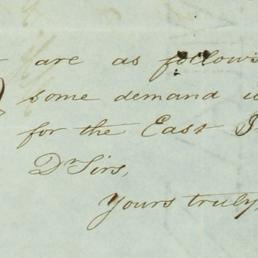 are as follows
some demand
for the East
Dr Sirs,
Yours truly,